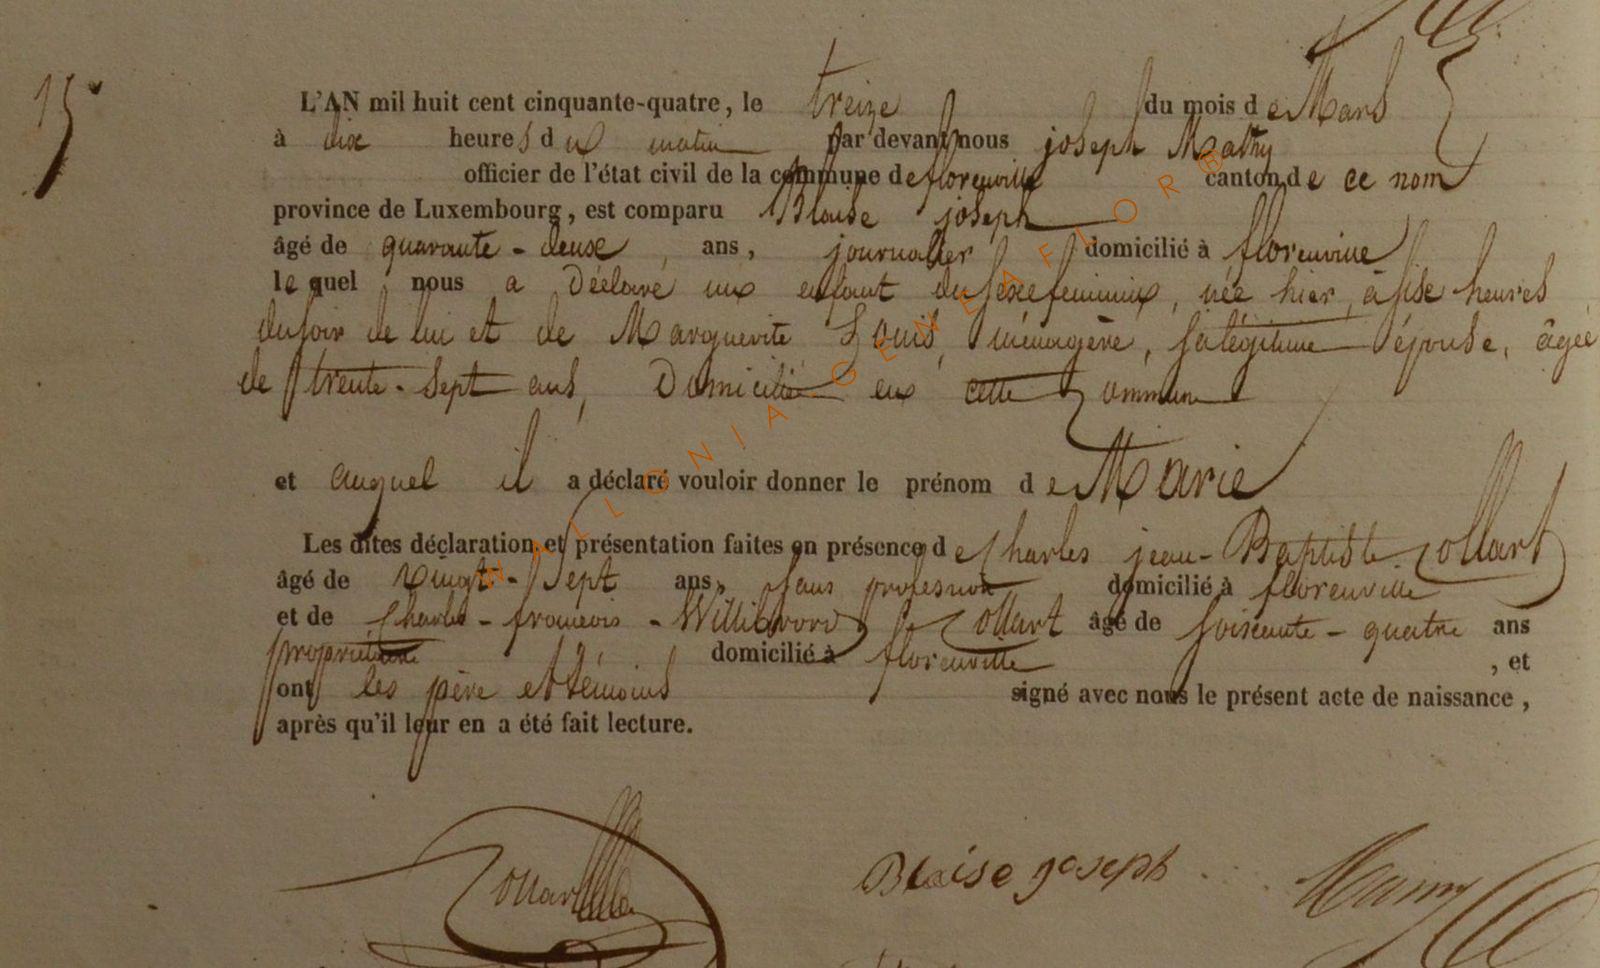 15
L'AN mil huit cent cinquante-quatre, le treize du mois de Mars
à dix heures du matin par devant nous joseph Mathy
officier de l'état civil de la commune de florenville canton de ce nom
province de Luxembourg, est comparu Blaise joseph
âgé de quarante-deux ans, journalier domicilié à florenville
lequel nous a Déclaré un enfant du sexe feminin, née hier, à six heures
du soir de lui et de Marguerite Louis, ménagère, sa légitime épouse, âgée
de trente-sept ans, Domicilié en cette Commune
et auquel il a déclaré vouloir donner le prénom de Marie
Les dites déclaration et présentation faites en présence de Charles jean-Baptiste Collart
âgé de vingt-sept ans, sans profession domicilié à florenville
et de Charles-françois-Willibrord Collart âgé de soixante-quatre ans
propriétaire domicilié à florenville, et
ont les père et témoins signé avec nous le présent acte de naissance,
après qu'il leur en a été fait lecture.
Collart Blaise joseph
WALLONIA GENEAFLORB